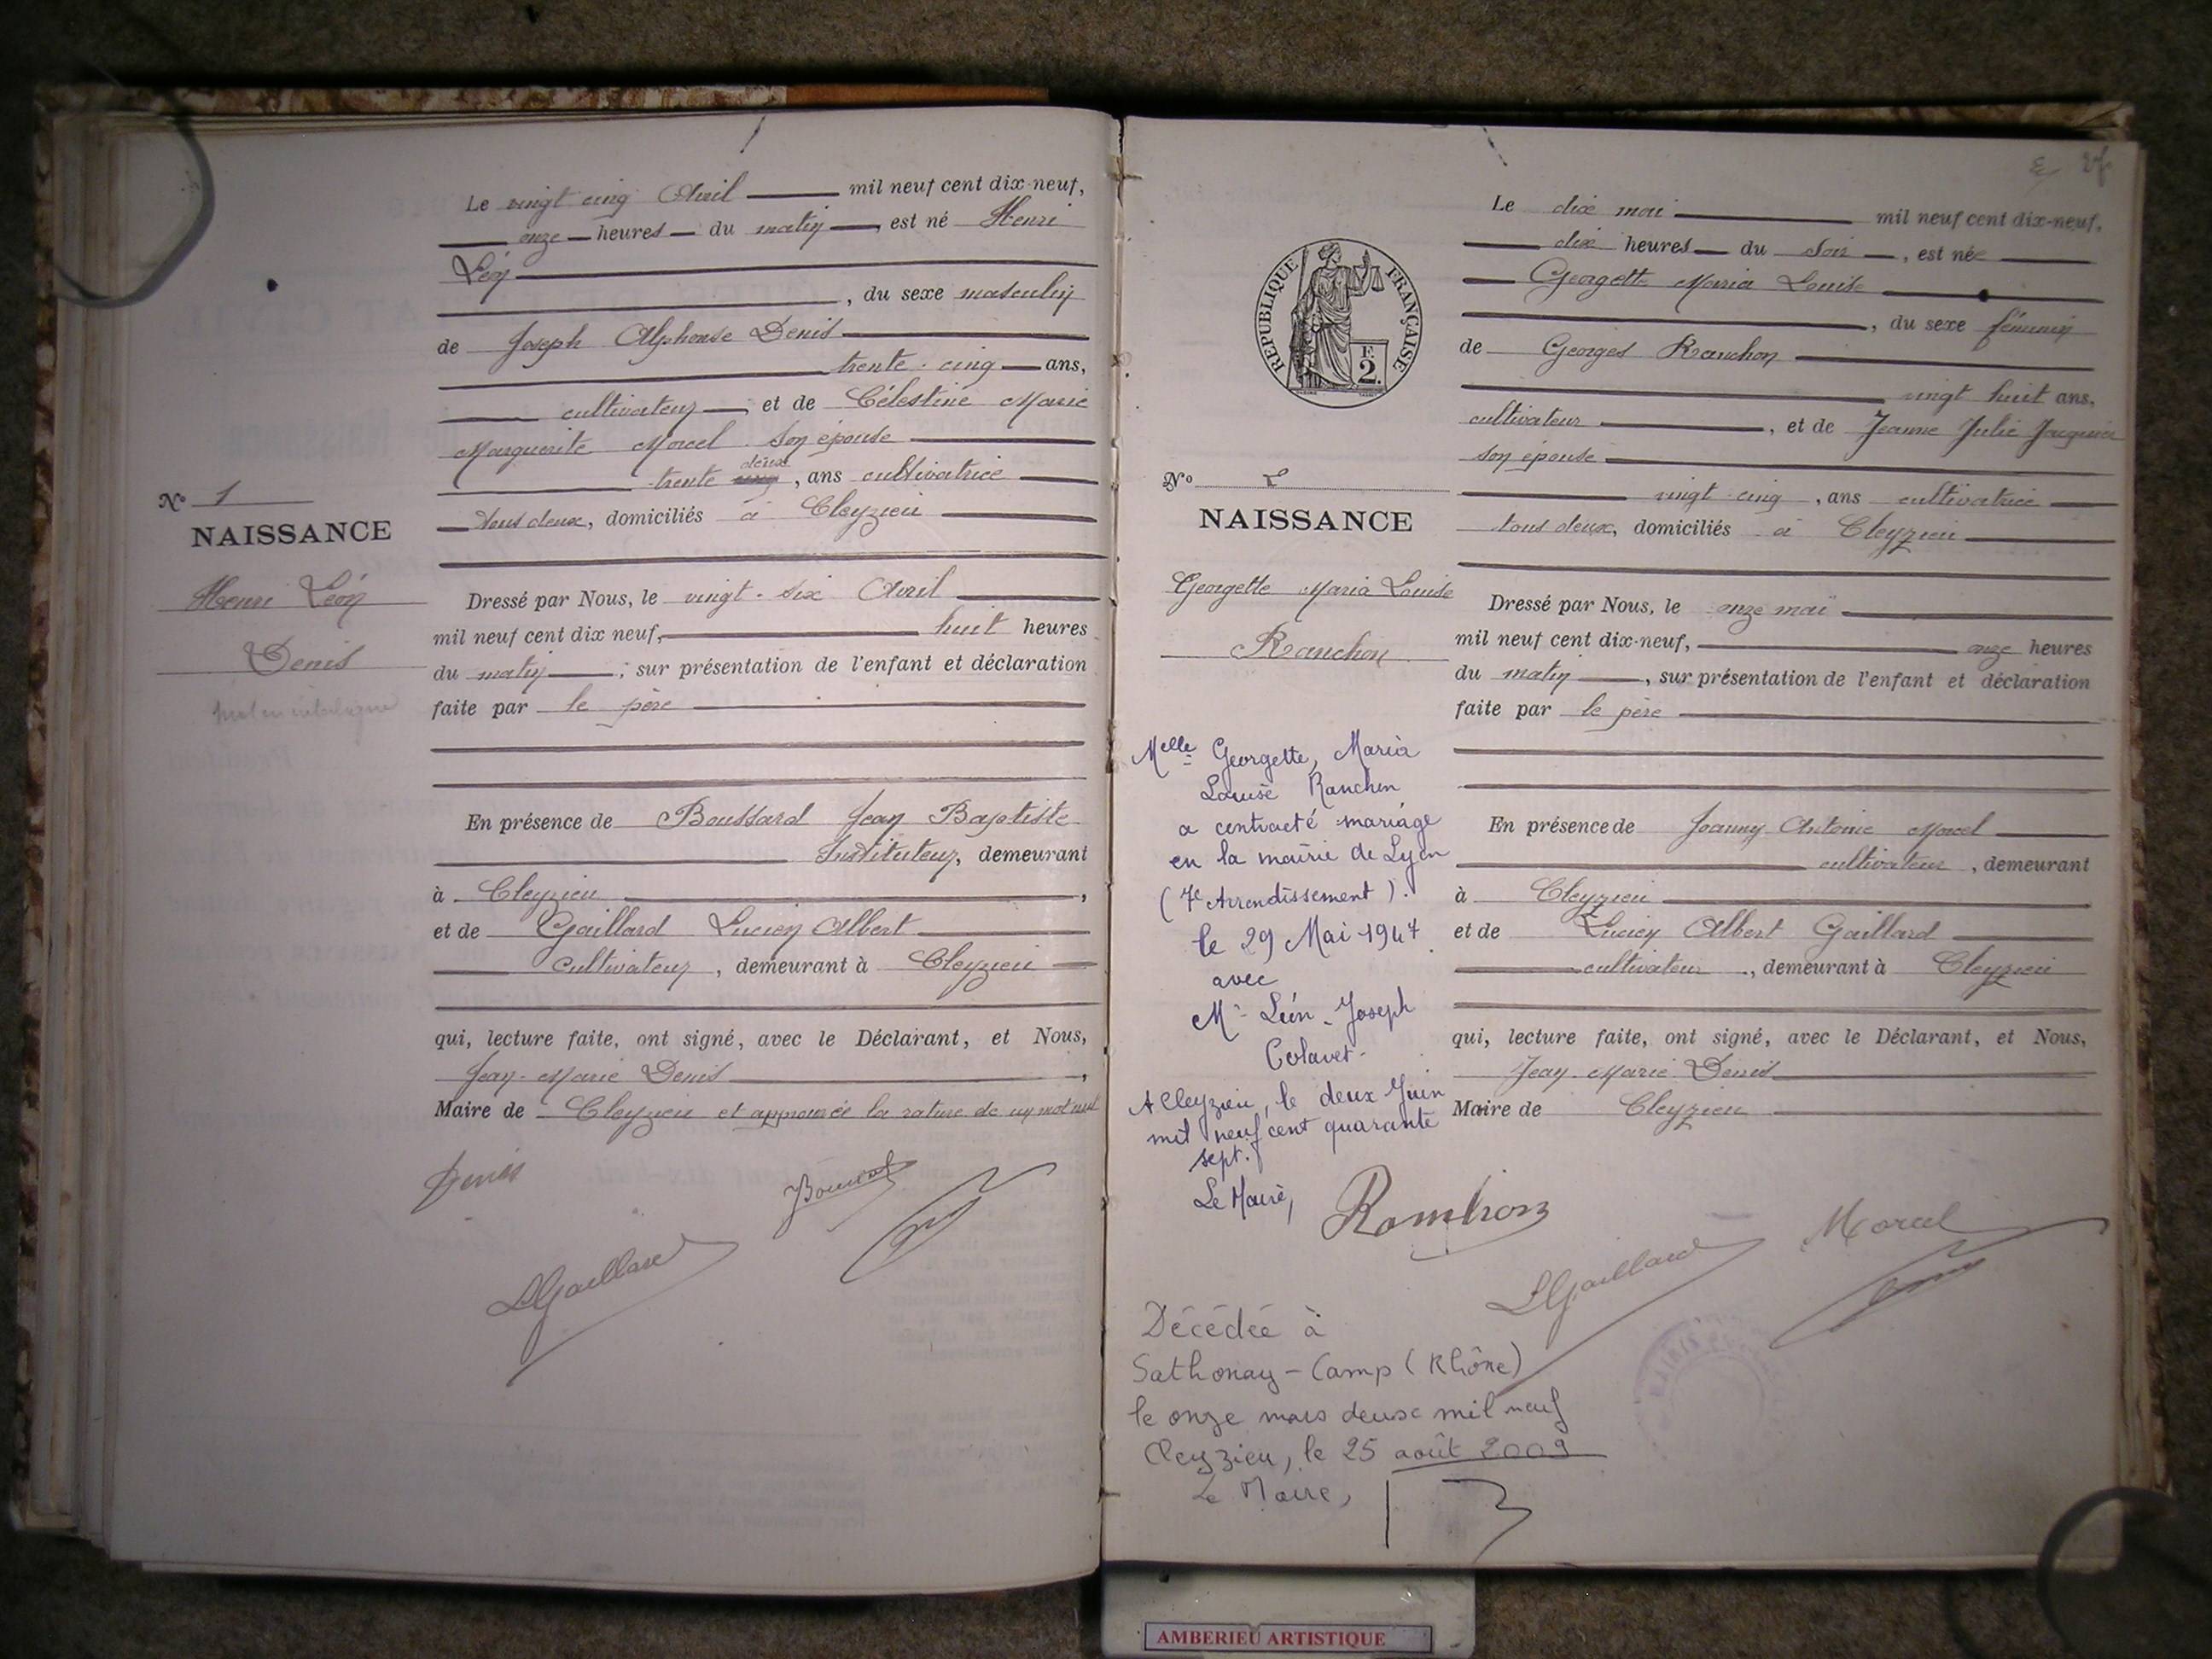 Le vingt cinq Avril mil neuf cent dix-neuf,
onze heures du matin, est né Henri
Léon
, du sexe masculin
de Joseph Alphonse Denis
trente-cinq ans,
cultivateur, et de Célestine Marie
Marguerite Morcel son épouse
deux
trente , ans cultivatrice
tous deux, domiciliés à Cleyzieu
No 1
NAISSANCE
Henri Léon
Denis
mot en interligne
Dressé par Nous, le vingt-six Avril
mil neuf cent dix neuf, huit heures
du matin ; sur présentation de l'enfant et déclaration
faite par le père
En présence de Boussard Jean Baptiste
Instituteur, demeurant
à Cleyzieu,
et de Gaillard Lucien Albert
Cultivateur, demeurant à Cleyzieu
qui, lecture faite, ont signé, avec le Déclarant, et Nous,
Jean-Marie Denis,
Maire de Cleyzieu et approuvée la rature de un mot nul
Denis
LGaillard
27
Le dix mai mil neuf cent dix-neuf,
dix heures du soir, est née
Georgette Maria Louise
, du sexe féminin
de Georges Ranchon
vingt huit ans,
cultivateur, et de Jeanne Julie
son épouse
vingt-cinq, ans cultivatrice
tous deux, domiciliés à Cleyzieu
RÉPUBLIQUE FRANÇAISE
F.
2.
No 2
NAISSANCE
Georgette Maria Louise
Ranchon
Dressé par Nous, le onze mai
mil neuf cent dix-neuf, onze heures
du matin, sur présentation de l'enfant et déclaration
faite par le père
En présence de Joanny Antonie Morcel
cultivateur, demeurant
à Cleyzieu
et de Lucien Albert Gaillard
cultivateur, demeurant à Cleyzieu
qui, lecture faite, ont signé, avec le Déclarant, et Nous,
Jean Marie Denis
Maire de Cleyzieu
Melle Georgette, Maria
Louise Ranchon
a contracté mariage
en la mairie de Lyon
(7e Arrondissement).
le 29 Mai 1947
avec
Mr Léon-Joseph
Colavet.
A Cleyzieu, le deux Juin
mil neuf cent quarante
sept.
Le Maire,
LGaillard
Morcel
MAIRIE
Décédée à
Sathonay-Camp (Rhône)
le onze mars deux mil neuf
Cleyzieu, le 25 août 2009
Le Maire,
AMBERIEU ARTISTIQUE